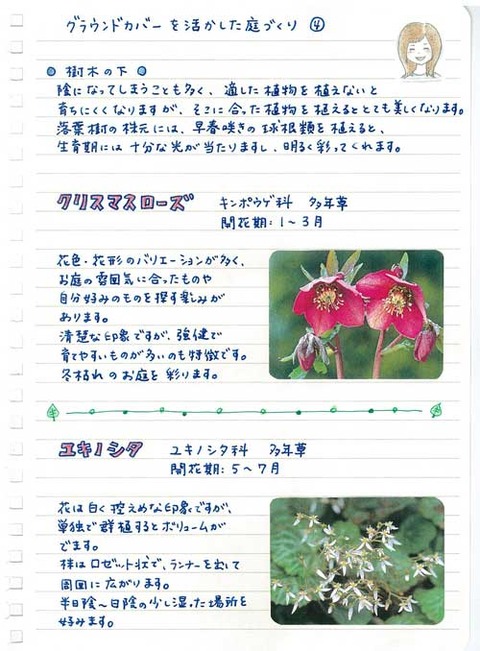 グラウンドカバーを活かした庭づくり ④
樹木の下
陰になってしまうことも多く、適した植物を植えないと
育ちにくくなりますが、そこに合った植物を植えるととても美しくなります。
落葉樹の株元には、早春咲きの球根類を植えると、
生育期には十分な光が当たりますし、明るく彩ってくれます。
クリスマスローズ キンポウゲ科 多年草
開花期:1〜3月
花色・花形のバリエーションが多く、
お庭の雰囲気に合ったものや
自分好みのものを探す楽しみが
あります。
清楚な印象ですが、強健で
育てやすいものが多いのも特徴です。
冬枯れのお庭を彩ります。
ユキノシタ ユキノシタ科 多年草
開花期:5〜7月
花は白く控えめな印象ですが、
単独で群植するとボリュームが
でます。
株はロゼット状で、ランナーを出して
周囲に広がります。
半日陰〜日陰の少し湿った場所を
好みます。